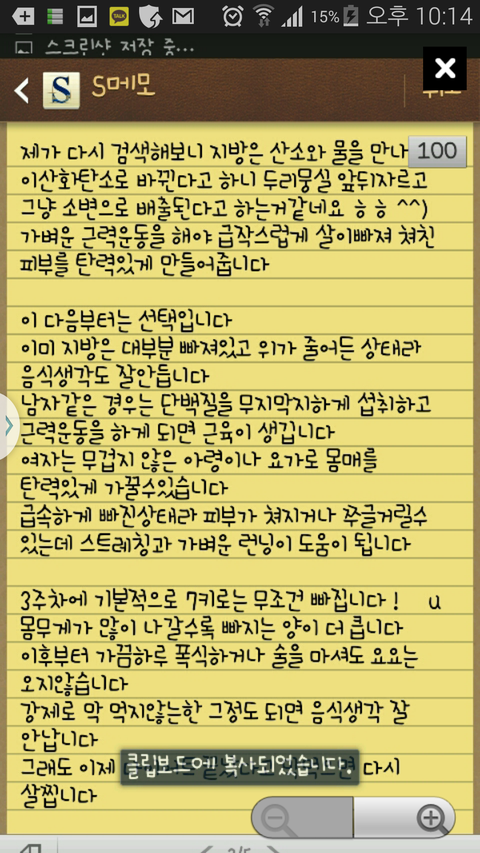 15% 오후 10:14
스크린샷 저장 중...
S메모
제가 다시 검색해보니 지방은 산소와 물을 만나 100
이산화탄소로 바뀐다고 하니 두리뭉실 앞뒤자르고
그냥 소변으로 배출된다고 하는거같네요 ㅎㅎ ^^)
가벼운 근력운동을 해야 급작스럽게 살이빠져 쳐친
피부를 탄력있게 만들어줍니다
이 다음부터는 선택입니다
이미 지방은 대부분 빠져있고 위가 줄어든 상태라
음식생각도 잘안듭니다
남자같은 경우는 단백질을 무지막지하게 섭취하고
근력운동을 하게 되면 근육이 생깁니다
여자는 무겁지 않은 아령이나 요가로 몸매를
탄력있게 가꿀수있습니다
급속하게 빠진상태라 피부가 쳐지거나 쭈글거릴수
있는데 스트레칭과 가벼운 런닝이 도움이 됩니다
3주차에 기본적으로 7키로는 무조건 빠집니다 ! u
몸무게가 많이 나갈수록 빠지는 양이 더 큽니다
이후부터 가끔하루 폭식하거나 술을 마셔도 요요는
오지않습니다
강제로 막 먹지않는한 그정도 되면 음식생각 잘
안납니다
그래도 이제 다시
클립보드에 복사되었습니다.
살찝니다